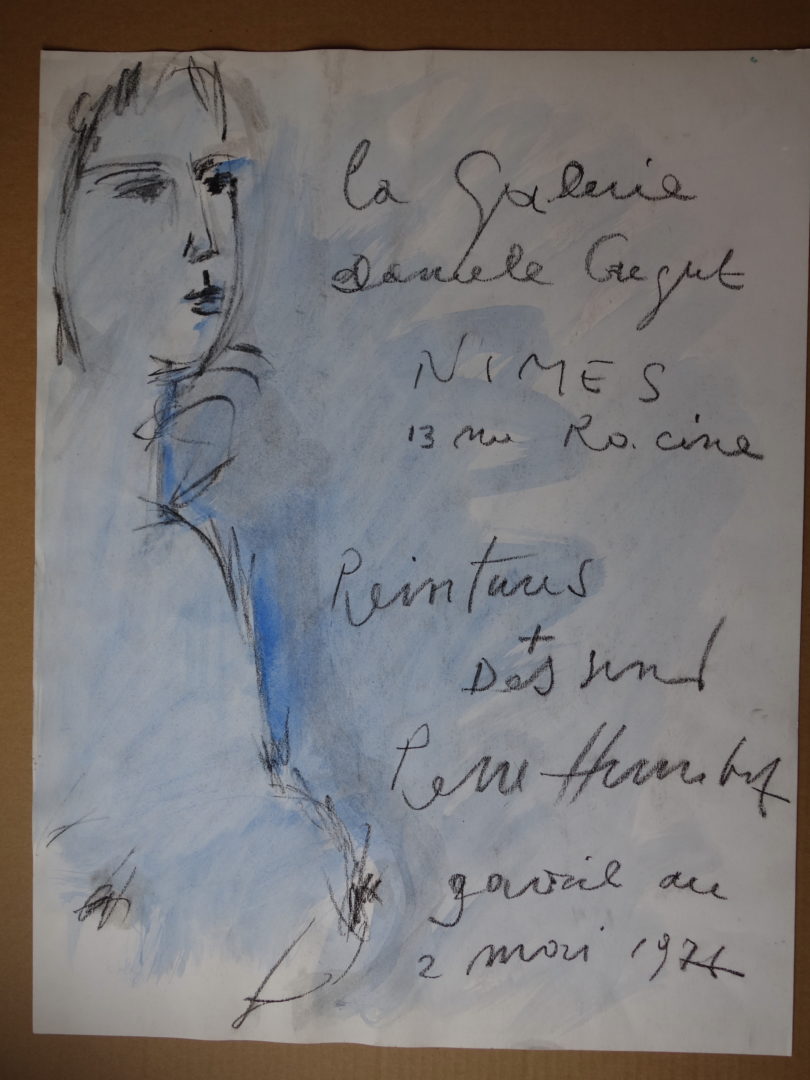 la Galerie
Daniele Cregut
NIMES
13 rue Racine
Peintures
+
Dessins
Pierre Humbert
9 avril au
2 mai